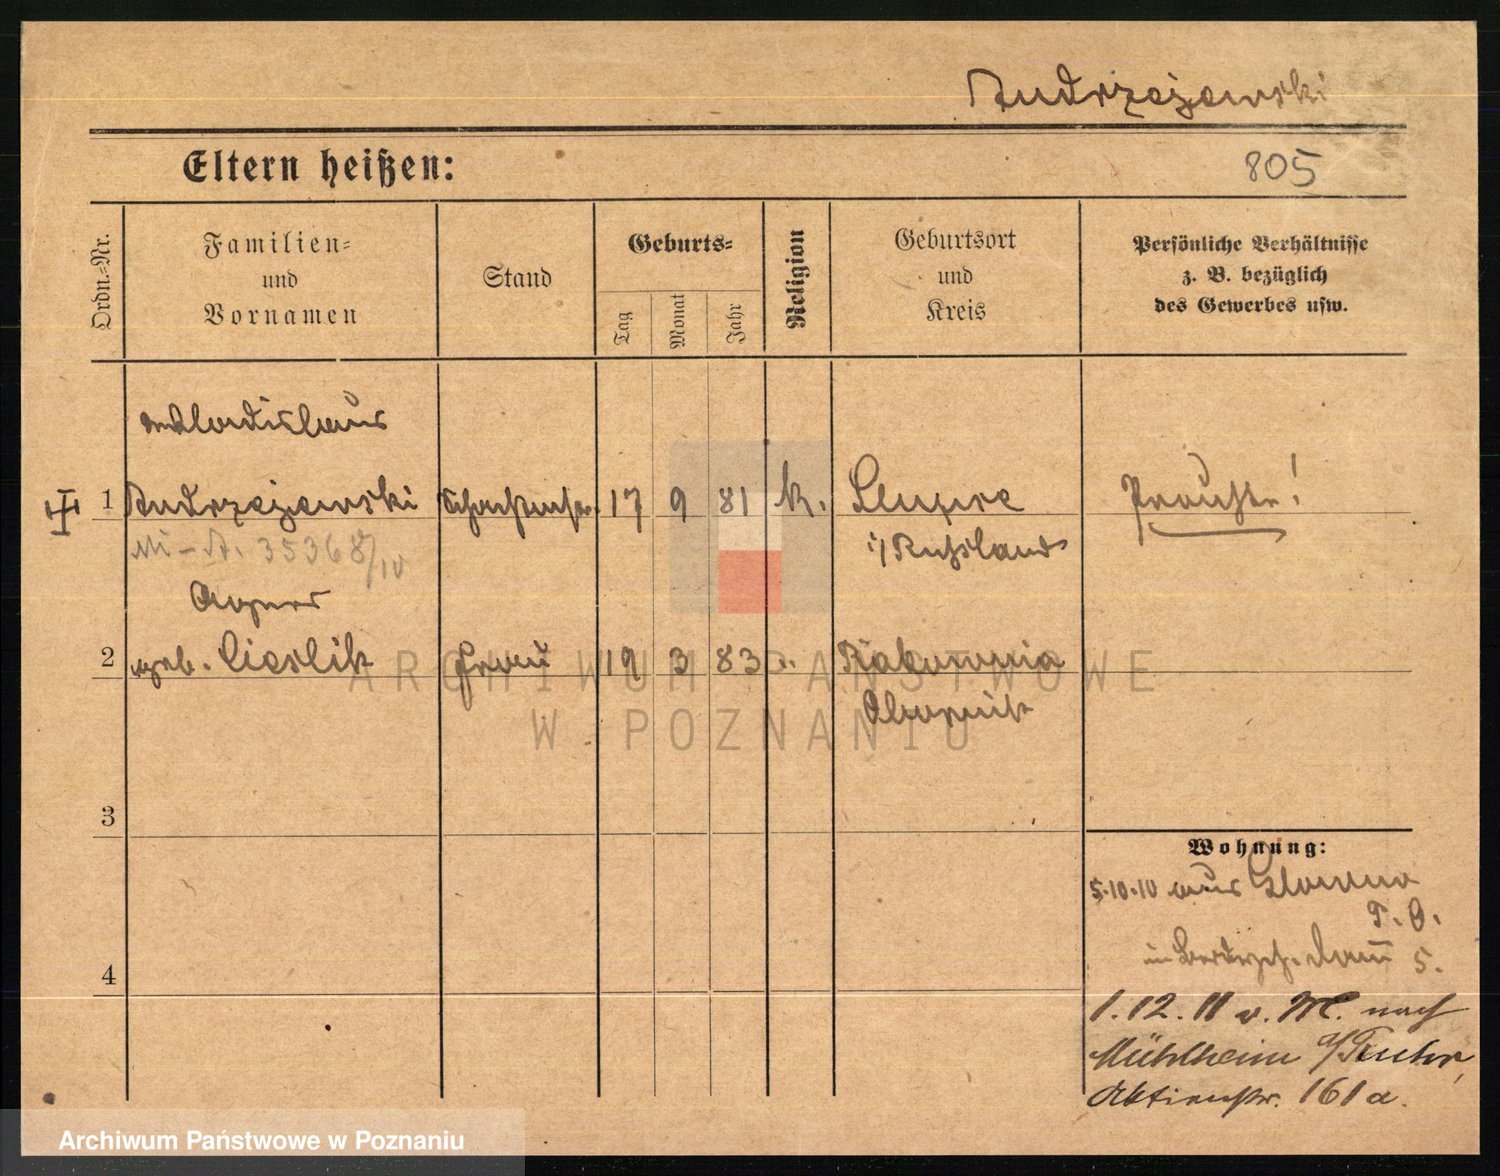 Andrzejewski
Eltern heißen:
805
Ordn.-Nr.
Familien-
und
Vornamen
Stand
Geburts-
Tag
Monat
Jahr
Religion
Geburtsort
und
Kreis
Persönliche Verhältnisse
z. B. bezüglich
des Gewerbes usw.
Wladislaus
1 Andrzejewski 17 9 81 k. Slupca
i/Rußland
35368/10
Agnes
2 geb. Cieslik Frau 19 3 83 " Rakownia
Obornik
3
Wohnung:
5.10.10 aus Glowno
P. O.
5.
4
1.12.11 v. M. nach
Mühlheim a/Ruhr,
Aktienstr. 161a.
ARCHIWUM PAŃSTWOWE
W POZNANIU
Archiwum Państwowe w Poznaniu